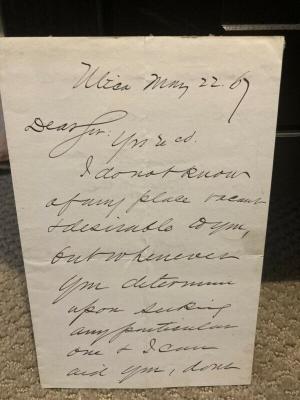 Utica May 22. 67
Dear Sir:
Yrs re cd.
I do not know
of any place vacant
& desirable to you,
but whenever
you determine
upon seeking
any particular
one & I can
aid you, dont